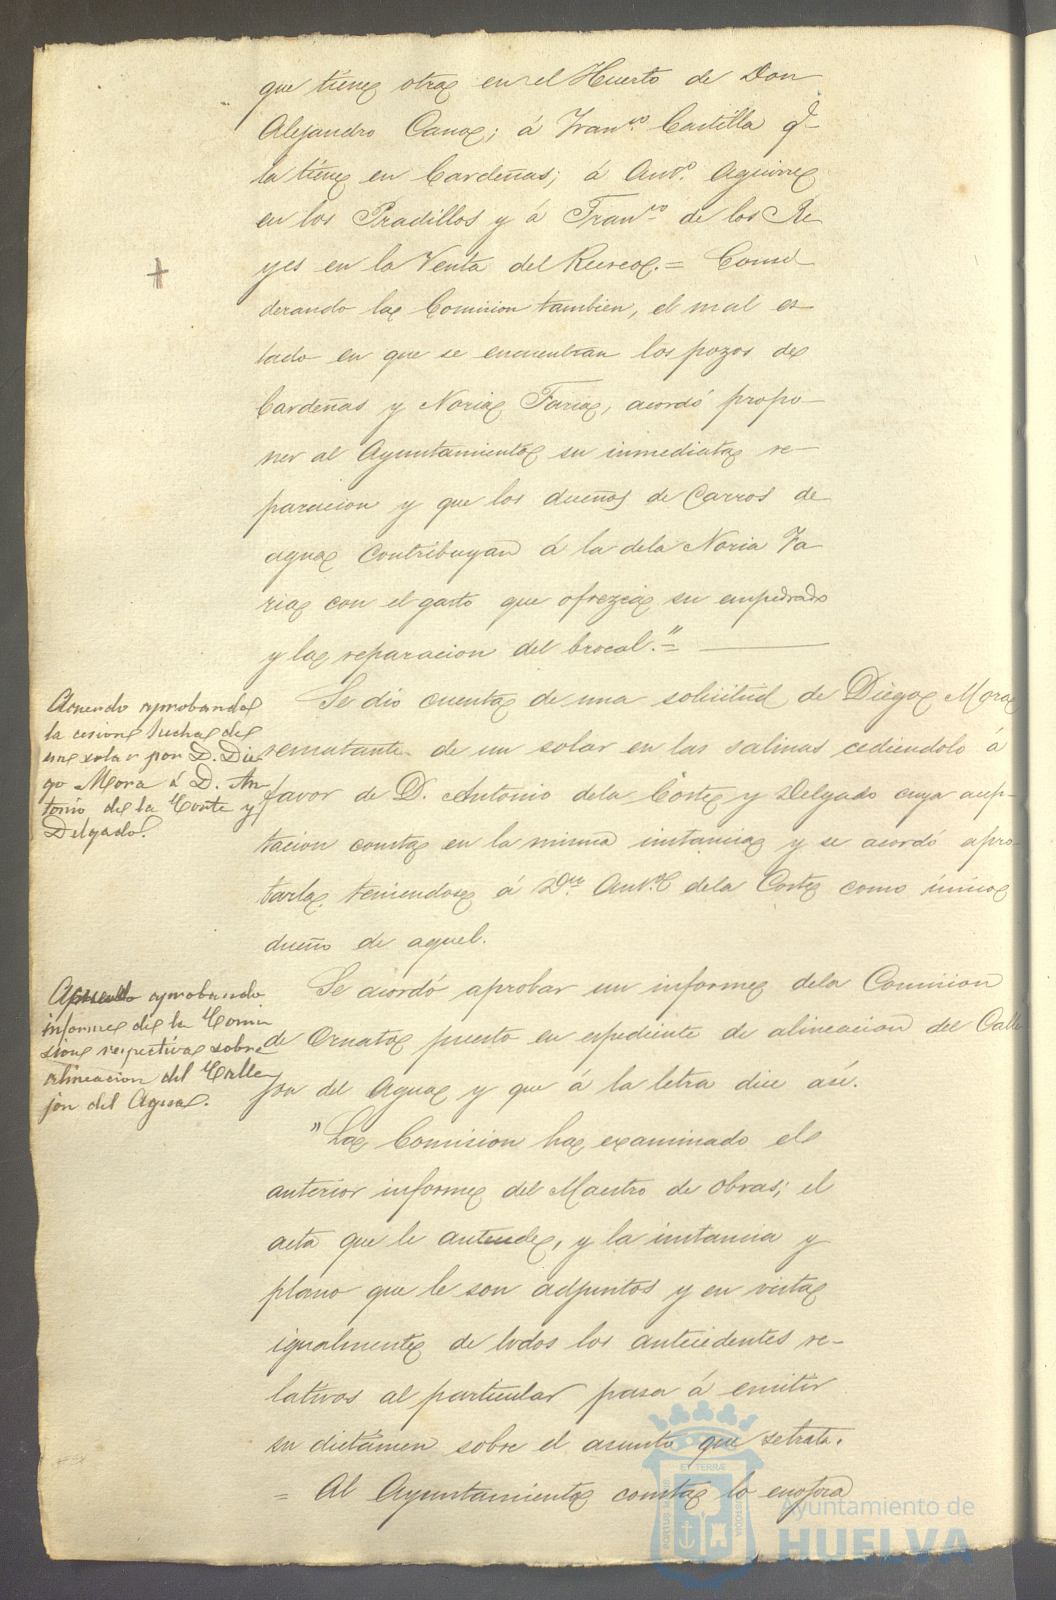 que tiene otra en el Huerto de Don
Alejandro Cano; á Fran.co Castilla q.e
la tiene en Cardeñas; á Ant.o Aguirre
en los Pradillos y á Fran.co de los Re
yes en la Venta del = Consi
derando la Comision tambien, el mal es
tado en que se encuentran los pozos de
Cardeñas y Noria Faria, acordó propo-
ner al Ayuntamiento su inmediata re-
paracion y que los dueños de Carros de
agua contribuyan á la dela Noria Fa
ria con el gasto que ofrezca su empedrado
y la reparacion del brocal."=
Acuerdo aprobando
la cesion hecha de
un solar por D. Die
go Mora á D. An
tonio de la Corte y
Delgado.
Se dió cuenta de una solicitud de Diego Mora
rematante de un solar en las salinas cediendolo á
favor de D. Antonio dela Corte y Delgado cuya acep-
tacion consta en la misma instancia y se acordó apro
barla teniendose á Dn. Ant.o dela Corte como único
dueño de aquel.
Acuerdo aprobando
informe de la Comi
sion respectiva sobre
alineacion del Calle
jon del Agua.
Se acordó aprobar un informe dela Comision
de Ornato puesto en espediente de alineacion del Calle
jon del Agua y que á la letra dice asi.
"La Comision ha examinado el
anterior informe del Maestro de obras; el
acta que le antecede, y la instancia y
plano que le son adjuntos y en vista
igualmente de todos los antecedentes re-
lativos al particular pasa á emitir
su dictámen sobre el asunto que se trata.
= Al Ayuntamiento consta lo
ET TERRÆ
PORTUS MARIS
CUSTODIA
Ayuntamiento de
HUELVA